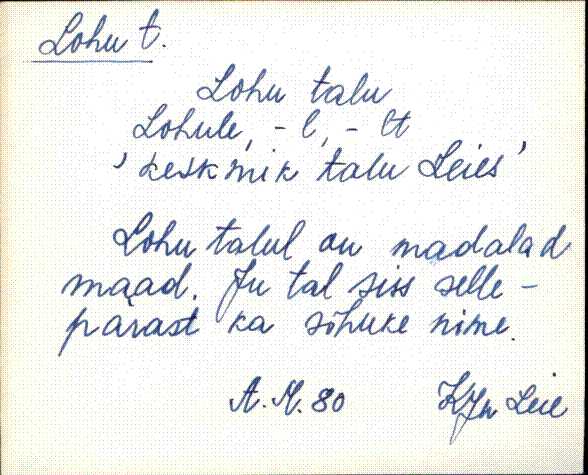 Lohu t.
Lohu talu
Lohule, -l, -lt
'keskmik talu Leies'
Lohu talul on madalad
maad. Ju tal siss selle-
pärast ka sõhuke nime.
A. M. 80 KJn Leie